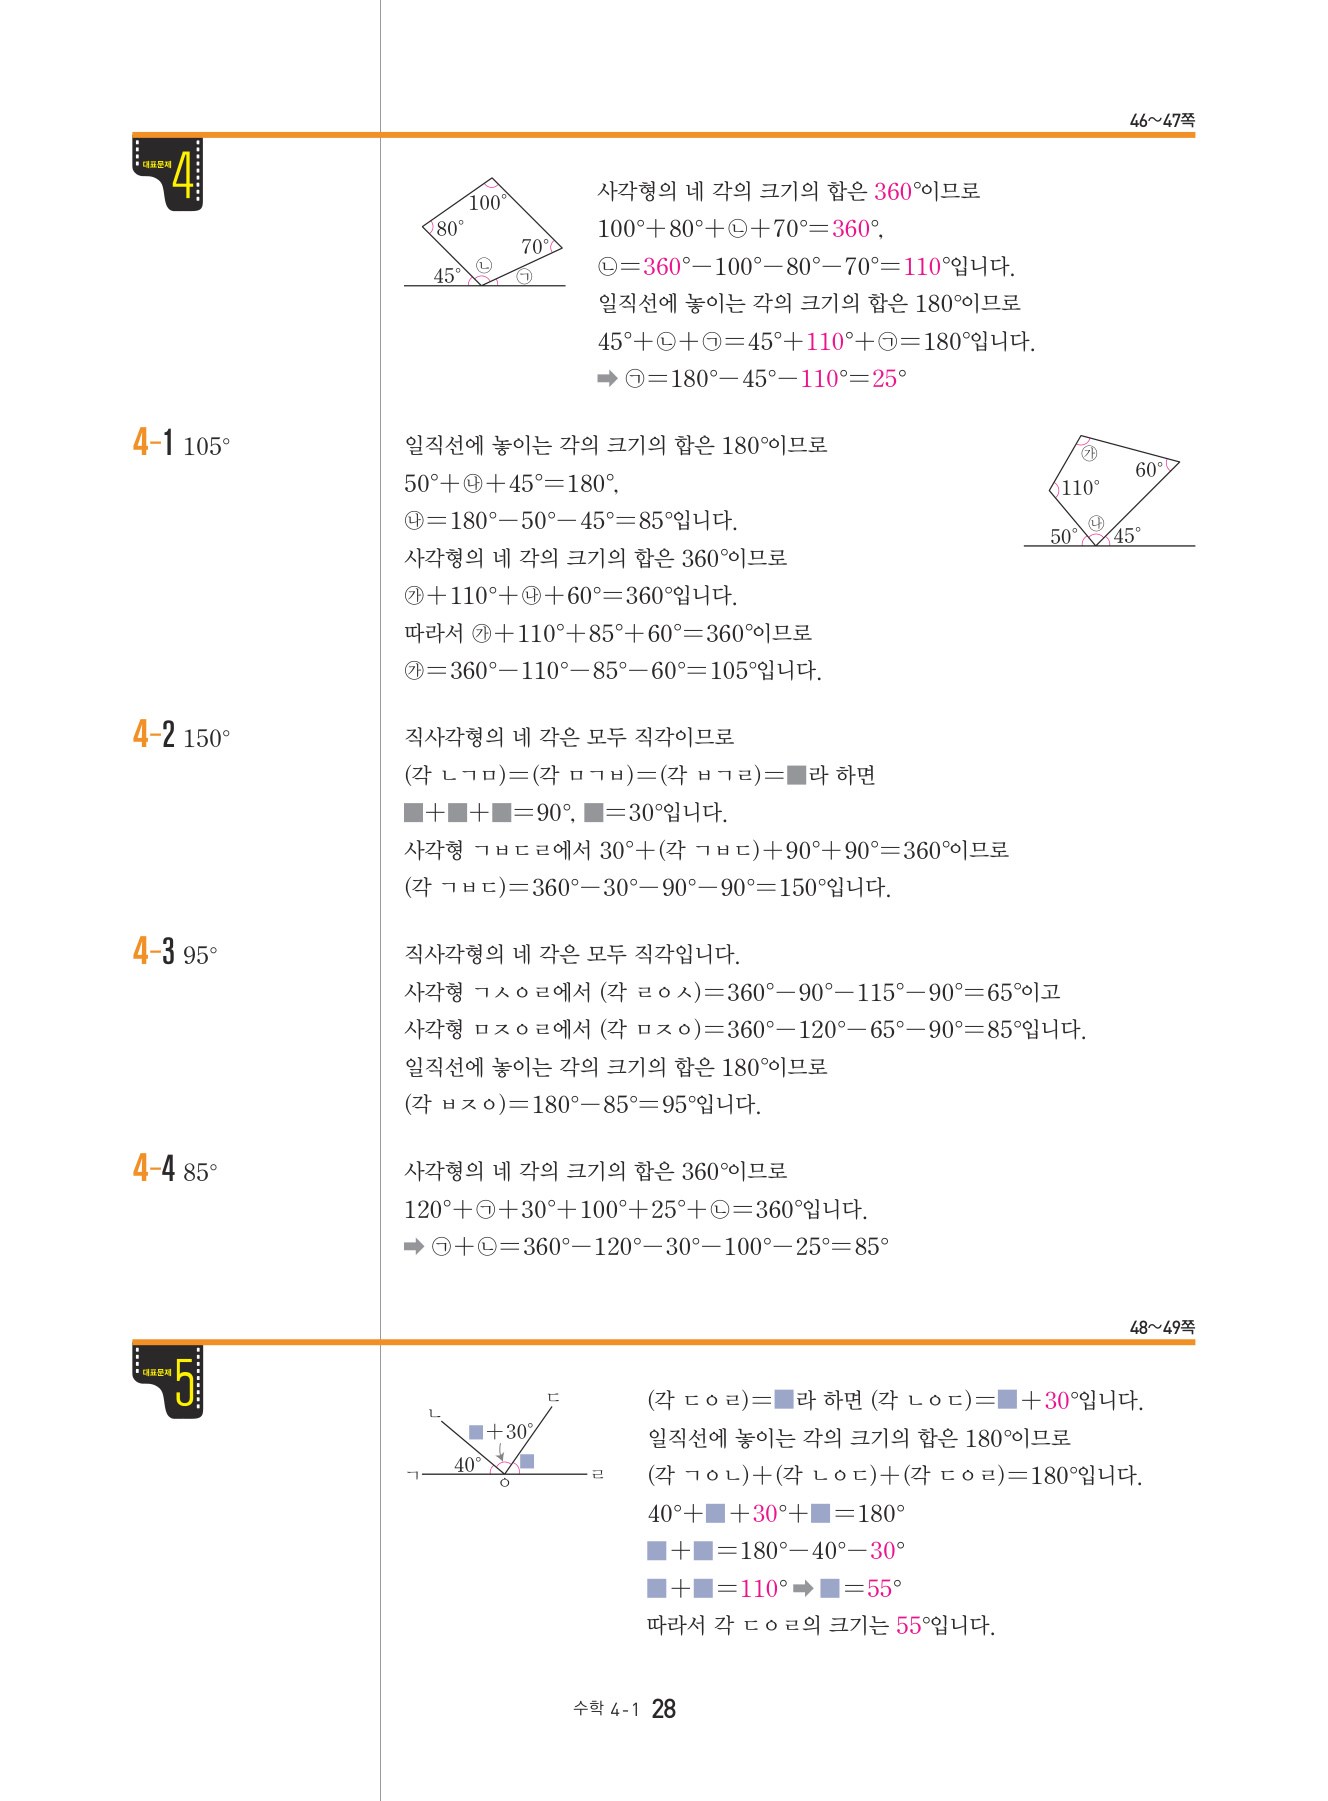 46~47쪽
대표문제 4
100°
80°
70°
45° ㉡ ㉠
사각형의 네 각의 크기의 합은 360°이므로
100°+80°+㉡+70°=360°,
㉡=360°-100°-80°-70°=110°입니다.
일직선에 놓이는 각의 크기의 합은 180°이므로
45°+㉡+㉠=45°+110°+㉠=180°입니다.
➡ ㉠=180°-45°-110°=25°
4-1 105°
일직선에 놓이는 각의 크기의 합은 180°이므로
50°+㉯+45°=180°,
㉯=180°-50°-45°=85°입니다.
사각형의 네 각의 크기의 합은 360°이므로
㉮+110°+㉯+60°=360°입니다.
따라서 ㉮+110°+85°+60°=360°이므로
㉮=360°-110°-85°-60°=105°입니다.
㉮
60°
110°
㉯
50° 45°
4-2 150°
직사각형의 네 각은 모두 직각이므로
(각 ㄴㄱㅁ)=(각 ㅁㄱㅂ)=(각 ㅂㄱㄹ)=■라 하면
■+■+■=90°, ■=30°입니다.
사각형 ㄱㅂㄷㄹ에서 30°+(각 ㄱㅂㄷ)+90°+90°=360°이므로
(각 ㄱㅂㄷ)=360°-30°-90°-90°=150°입니다.
4-3 95°
직사각형의 네 각은 모두 직각입니다.
사각형 ㄱㅅㅇㄹ에서 (각 ㄹㅇㅅ)=360°-90°-115°-90°=65°이고
사각형 ㅁㅈㅇㄹ에서 (각 ㅁㅈㅇ)=360°-120°-65°-90°=85°입니다.
일직선에 놓이는 각의 크기의 합은 180°이므로
(각 ㅂㅈㅇ)=180°-85°=95°입니다.
4-4 85°
사각형의 네 각의 크기의 합은 360°이므로
120°+㉠+30°+100°+25°+㉡=360°입니다.
➡ ㉠+㉡=360°-120°-30°-100°-25°=85°
48~49쪽
대표문제 5
ㄷ
ㄴ
■+30°
40° ■
ㄱ ㄹ
ㅇ
(각 ㄷㅇㄹ)=■라 하면 (각 ㄴㅇㄷ)=■+30°입니다.
일직선에 놓이는 각의 크기의 합은 180°이므로
(각 ㄱㅇㄴ)+(각 ㄴㅇㄷ)+(각 ㄷㅇㄹ)=180°입니다.
40°+■+30°+■=180°
■+■=180°-40°-30°
■+■=110° ➡ ■=55°
따라서 각 ㄷㅇㄹ의 크기는 55°입니다.
수학 4-1 28